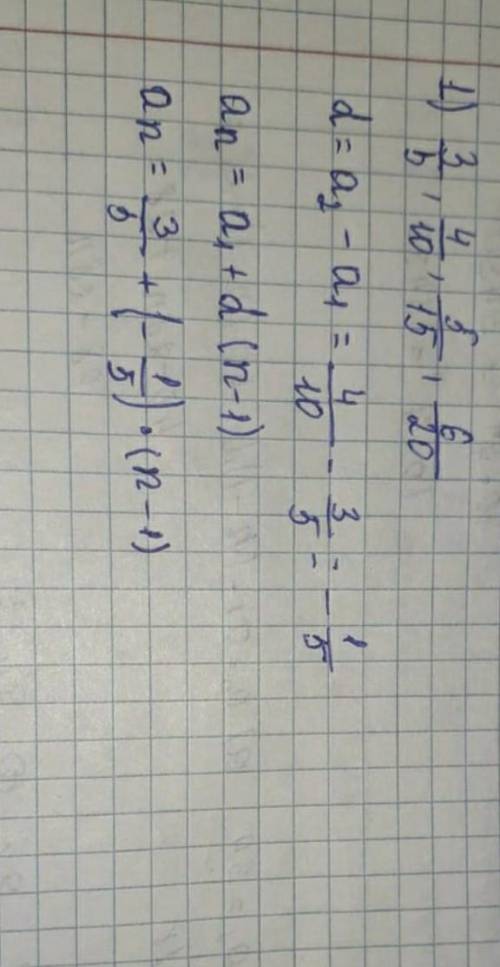 1) 3/5, 4/10, 5/15, 6/20
d = a₂ - a₁ = 4/10 - 3/5 = -1/5
an = a₁ + d(n-1)
an = 3/5 + (-1/5)·(n-1)